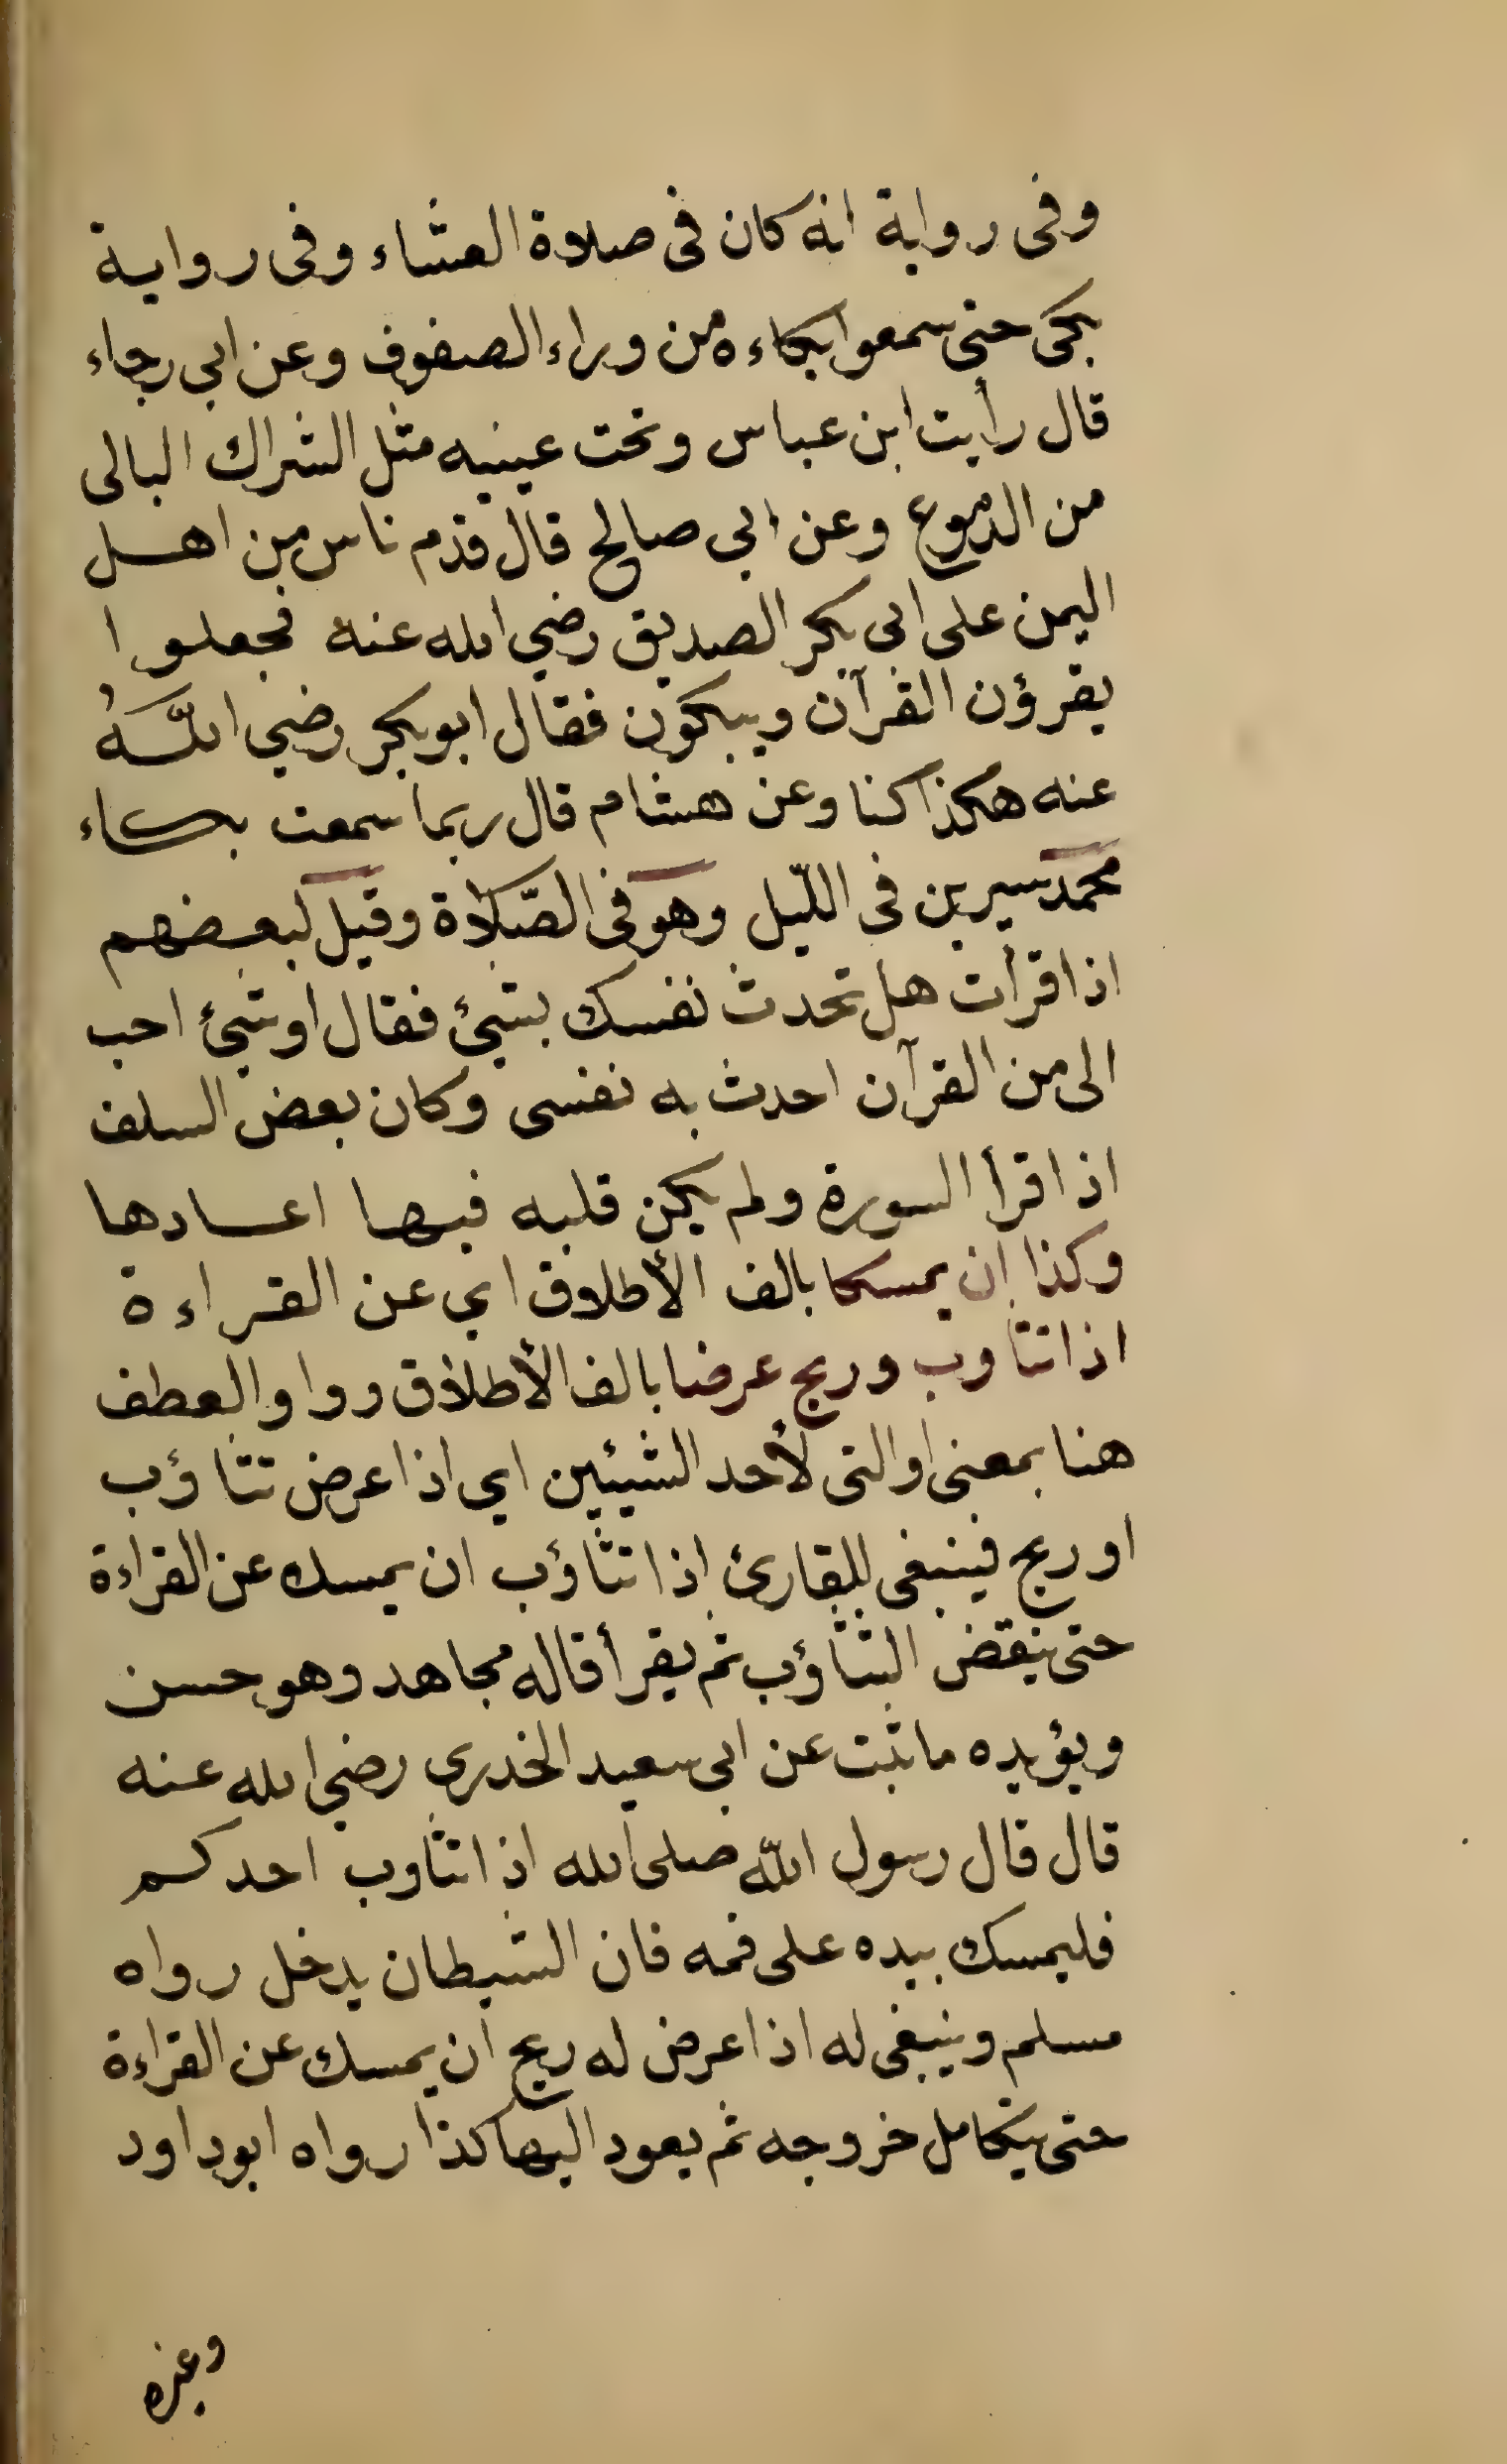 وفى رواية انه كان فى صلاة العشاء وفى رواية
بكى حتى سمعوا بكاءه من وراء الصفوف وعن ابي رجاء
قال رأيت ابن عباس وتحت عينيه مثل الشراك البالى
من الدموع وعن ابي صالح قال قدم ناس من اهل
اليمن على ابى بكر الصديق رضي الله عنه فجعلوا
يقرؤن القرآن ويبكون فقال ابو بكر رضي اللَّهُ
عنه هكذا كنا وعن هشام قال ربما سمعت بكاء
محمد سيرين فى اللّيل وهو فى الصّلاة وقيل لبعضهم
اذا قرأت هل تحدث نفسك بشئ فقال او شئ احب
الى من القرآن احدث به نفسى وكان بعض السلف
اذا قرأ السورة ولم يكن قلبه فيها اعادها
وكذا ان يمسكا بالف الأطلاق اي عن القراءة
اذا تثاوب وريح عرضا بالف الأطلاق وواو العطف
هنا بمعنى او التى لأحد الشيئين اي اذا عرض تثاؤب
او ريح فينبغى للقارئ اذا تثاؤب ان يمسك عن القراءة
حتى ينقض التثاؤب ثم يقرأ قاله مجاهد وهو حسن
ويؤيده ما ثبت عن ابى سعيد الخدرى رضي الله عنه
قال قال رسول اللّه صلى الله اذا تثاوب احدكم
فليمسك بيده على فمه فان الشيطان يدخل رواه
مسلم وينبغى له اذا عرض له ريح ان يمسك عن القراءة
حتى يتكامل خروجه ثم يعود اليها كذا رواه ابو داود
وغيره